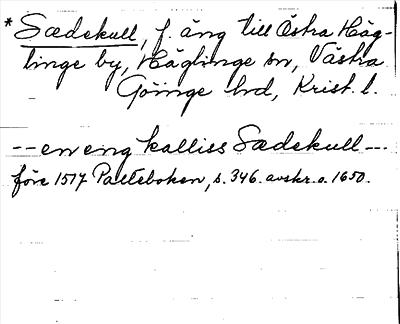 * Sædekull, f. äng till Östra Häg-
linge by, Häglinge sn, Västra
Göinge hd, Krist. l.
-- en eng kalliss Sædekull --.
före 1517 Palteboken, s. 346. avskr. o. 1650.